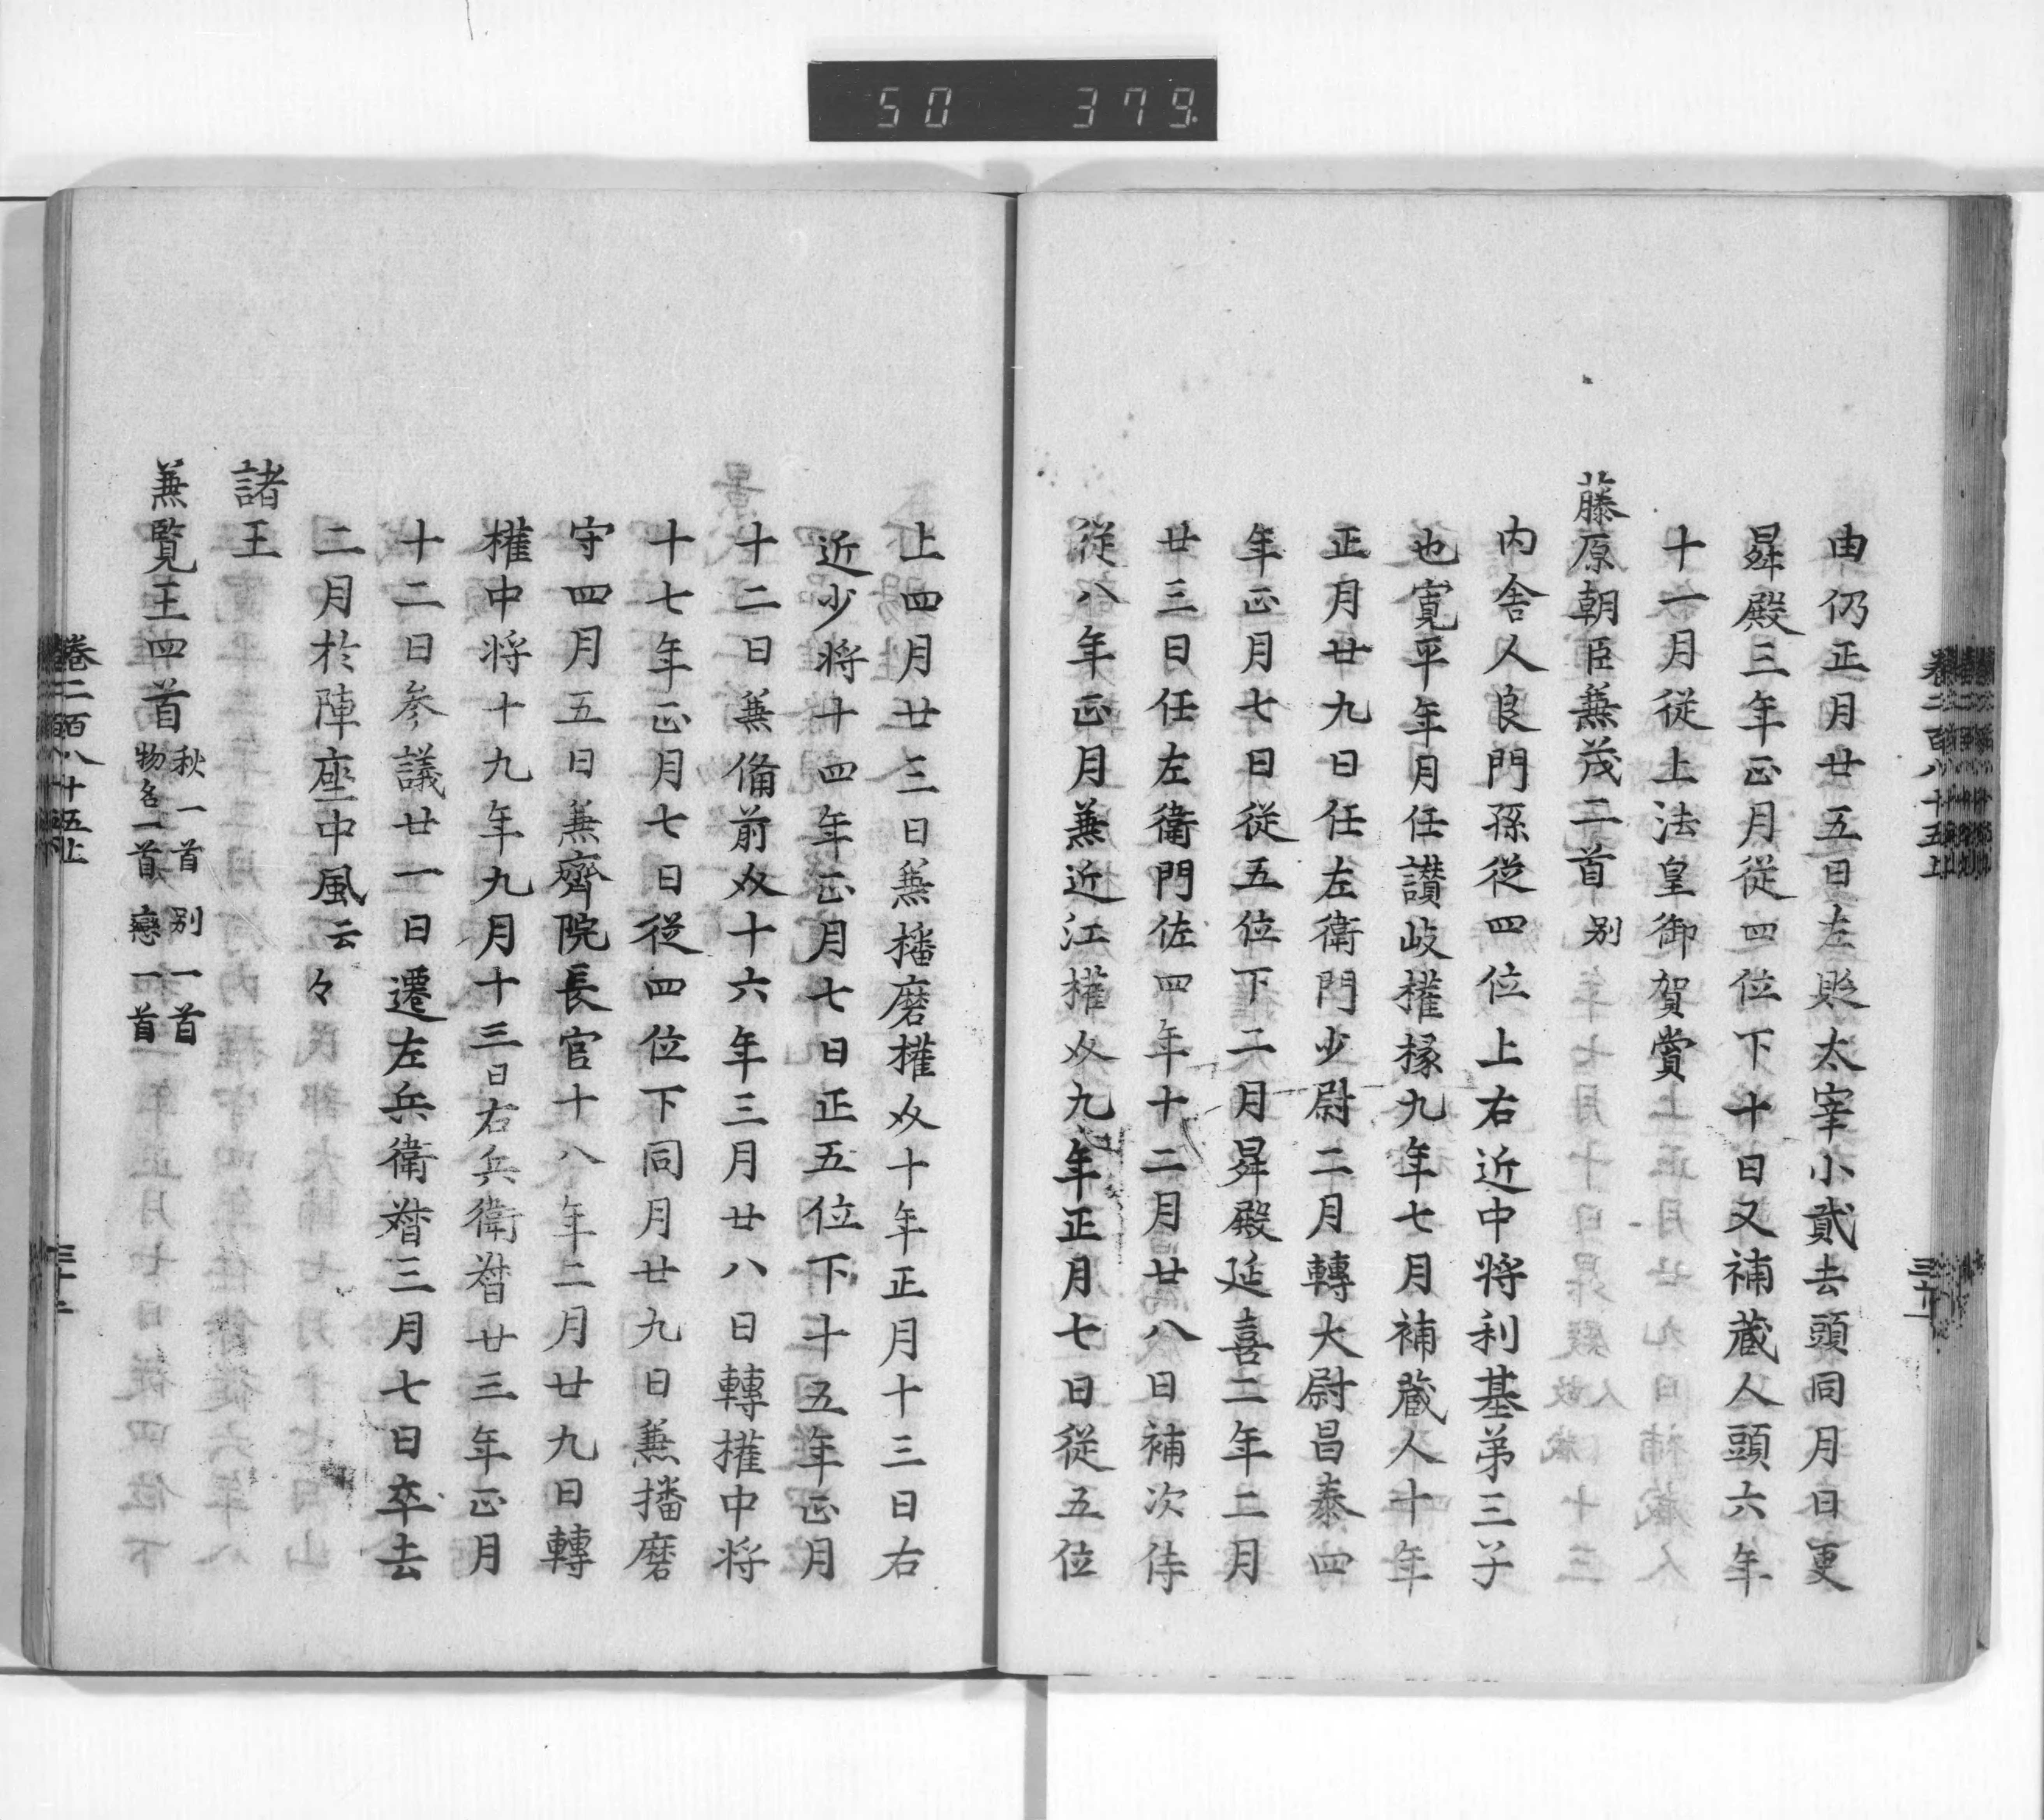 50 379
由仍正月廿五日左貶太宰小貳去頭同月日更
昇殿三年正月従四位下十日又補蔵人頭六年
十一月従上法皇御賀賞
藤原朝臣兼茂二首別
内舎人良門孫従四位上右近中将利基第三子
也寛平年月任讃岐權掾九年七月補蔵人十年
正月廿九日任左衛門少尉二月轉大尉昌泰四
年正月七日従五位下二月昇殿延喜二年二月
廿三日任左衛門佐四年十二月廿八日補次侍
従八年正月兼近江權㕛九年正月七日従五位
上四月廿三日兼播磨權㕛十年正月十三日右
近少将十四年正月七日正五位下十五年正月
十二日兼備前㕛十六年三月廿八日轉權中将
十七年正月七日従四位下同月廿九日兼播磨
守四月五日兼齊院長官十八年二月廿九日轉
權中将十九年九月十三日右兵衛督廿三年正月
十二日参議廿一日遷左兵衛督三月七日卒去
二月於陣座中風云々
諸王
兼覧王四首 秋一首 別一首
物名一首 戀一首
卷二百八十五上